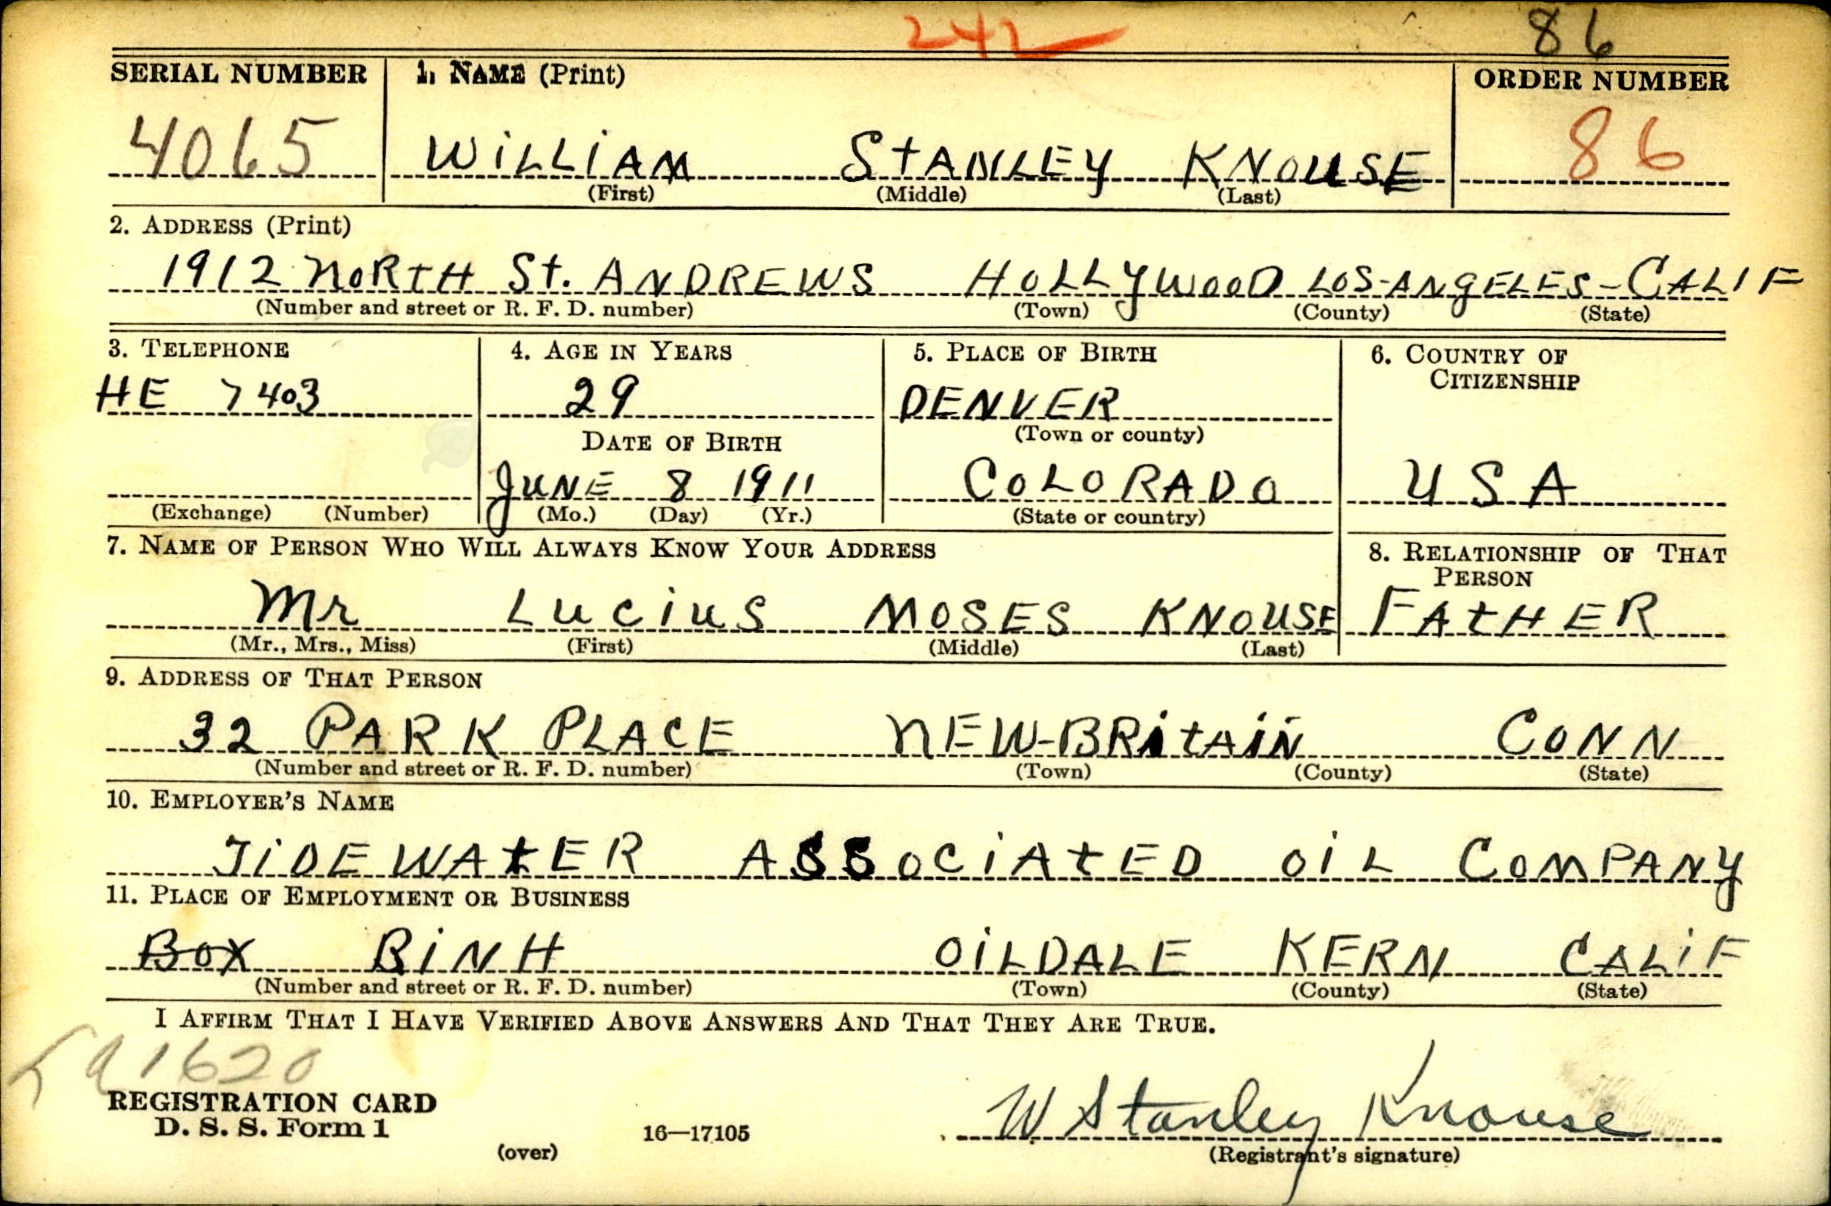 242 86
SERIAL NUMBER 1. NAME (Print) ORDER NUMBER
4065 WILLIAM STANLEY KNOUSE 86
(First) (Middle) (Last)
2. ADDRESS (Print)
1912 NORTH St. ANDREWS HOLLYWOOD LOS-ANGELES-CALIF
(Number and street or R. F. D. number) (Town) (County) (State)
3. TELEPHONE 4. AGE IN YEARS 5. PLACE OF BIRTH 6. COUNTRY OF
CITIZENSHIP
HE 7403 29 DENVER
DATE OF BIRTH (Town or county)
JUNE 8 1911 COLORADO USA
(Exchange) (Number) (Mo.) (Day) (Yr.) (State or country)
7. NAME OF PERSON WHO WILL ALWAYS KNOW YOUR ADDRESS 8. RELATIONSHIP OF THAT
PERSON
Mr LUCIUS MOSES KNOUSE FATHER
(Mr., Mrs., Miss) (First) (Middle) (Last)
9. ADDRESS OF THAT PERSON
32 PARK PLACE NEW-BRITAIN CONN
(Number and street or R. F. D. number) (Town) (County) (State)
10. EMPLOYER'S NAME
TIDE WATER ASSOCIATED OIL COMPANY
11. PLACE OF EMPLOYMENT OR BUSINESS
BOX BINH OILDALE KERN CALIF
(Number and street or R. F. D. number) (Town) (County) (State)
I AFFIRM THAT I HAVE VERIFIED ABOVE ANSWERS AND THAT THEY ARE TRUE.
1620
REGISTRATION CARD
D. S. S. Form 1
(over) 16—17105
W Stanley Knouse
(Registrant's signature)